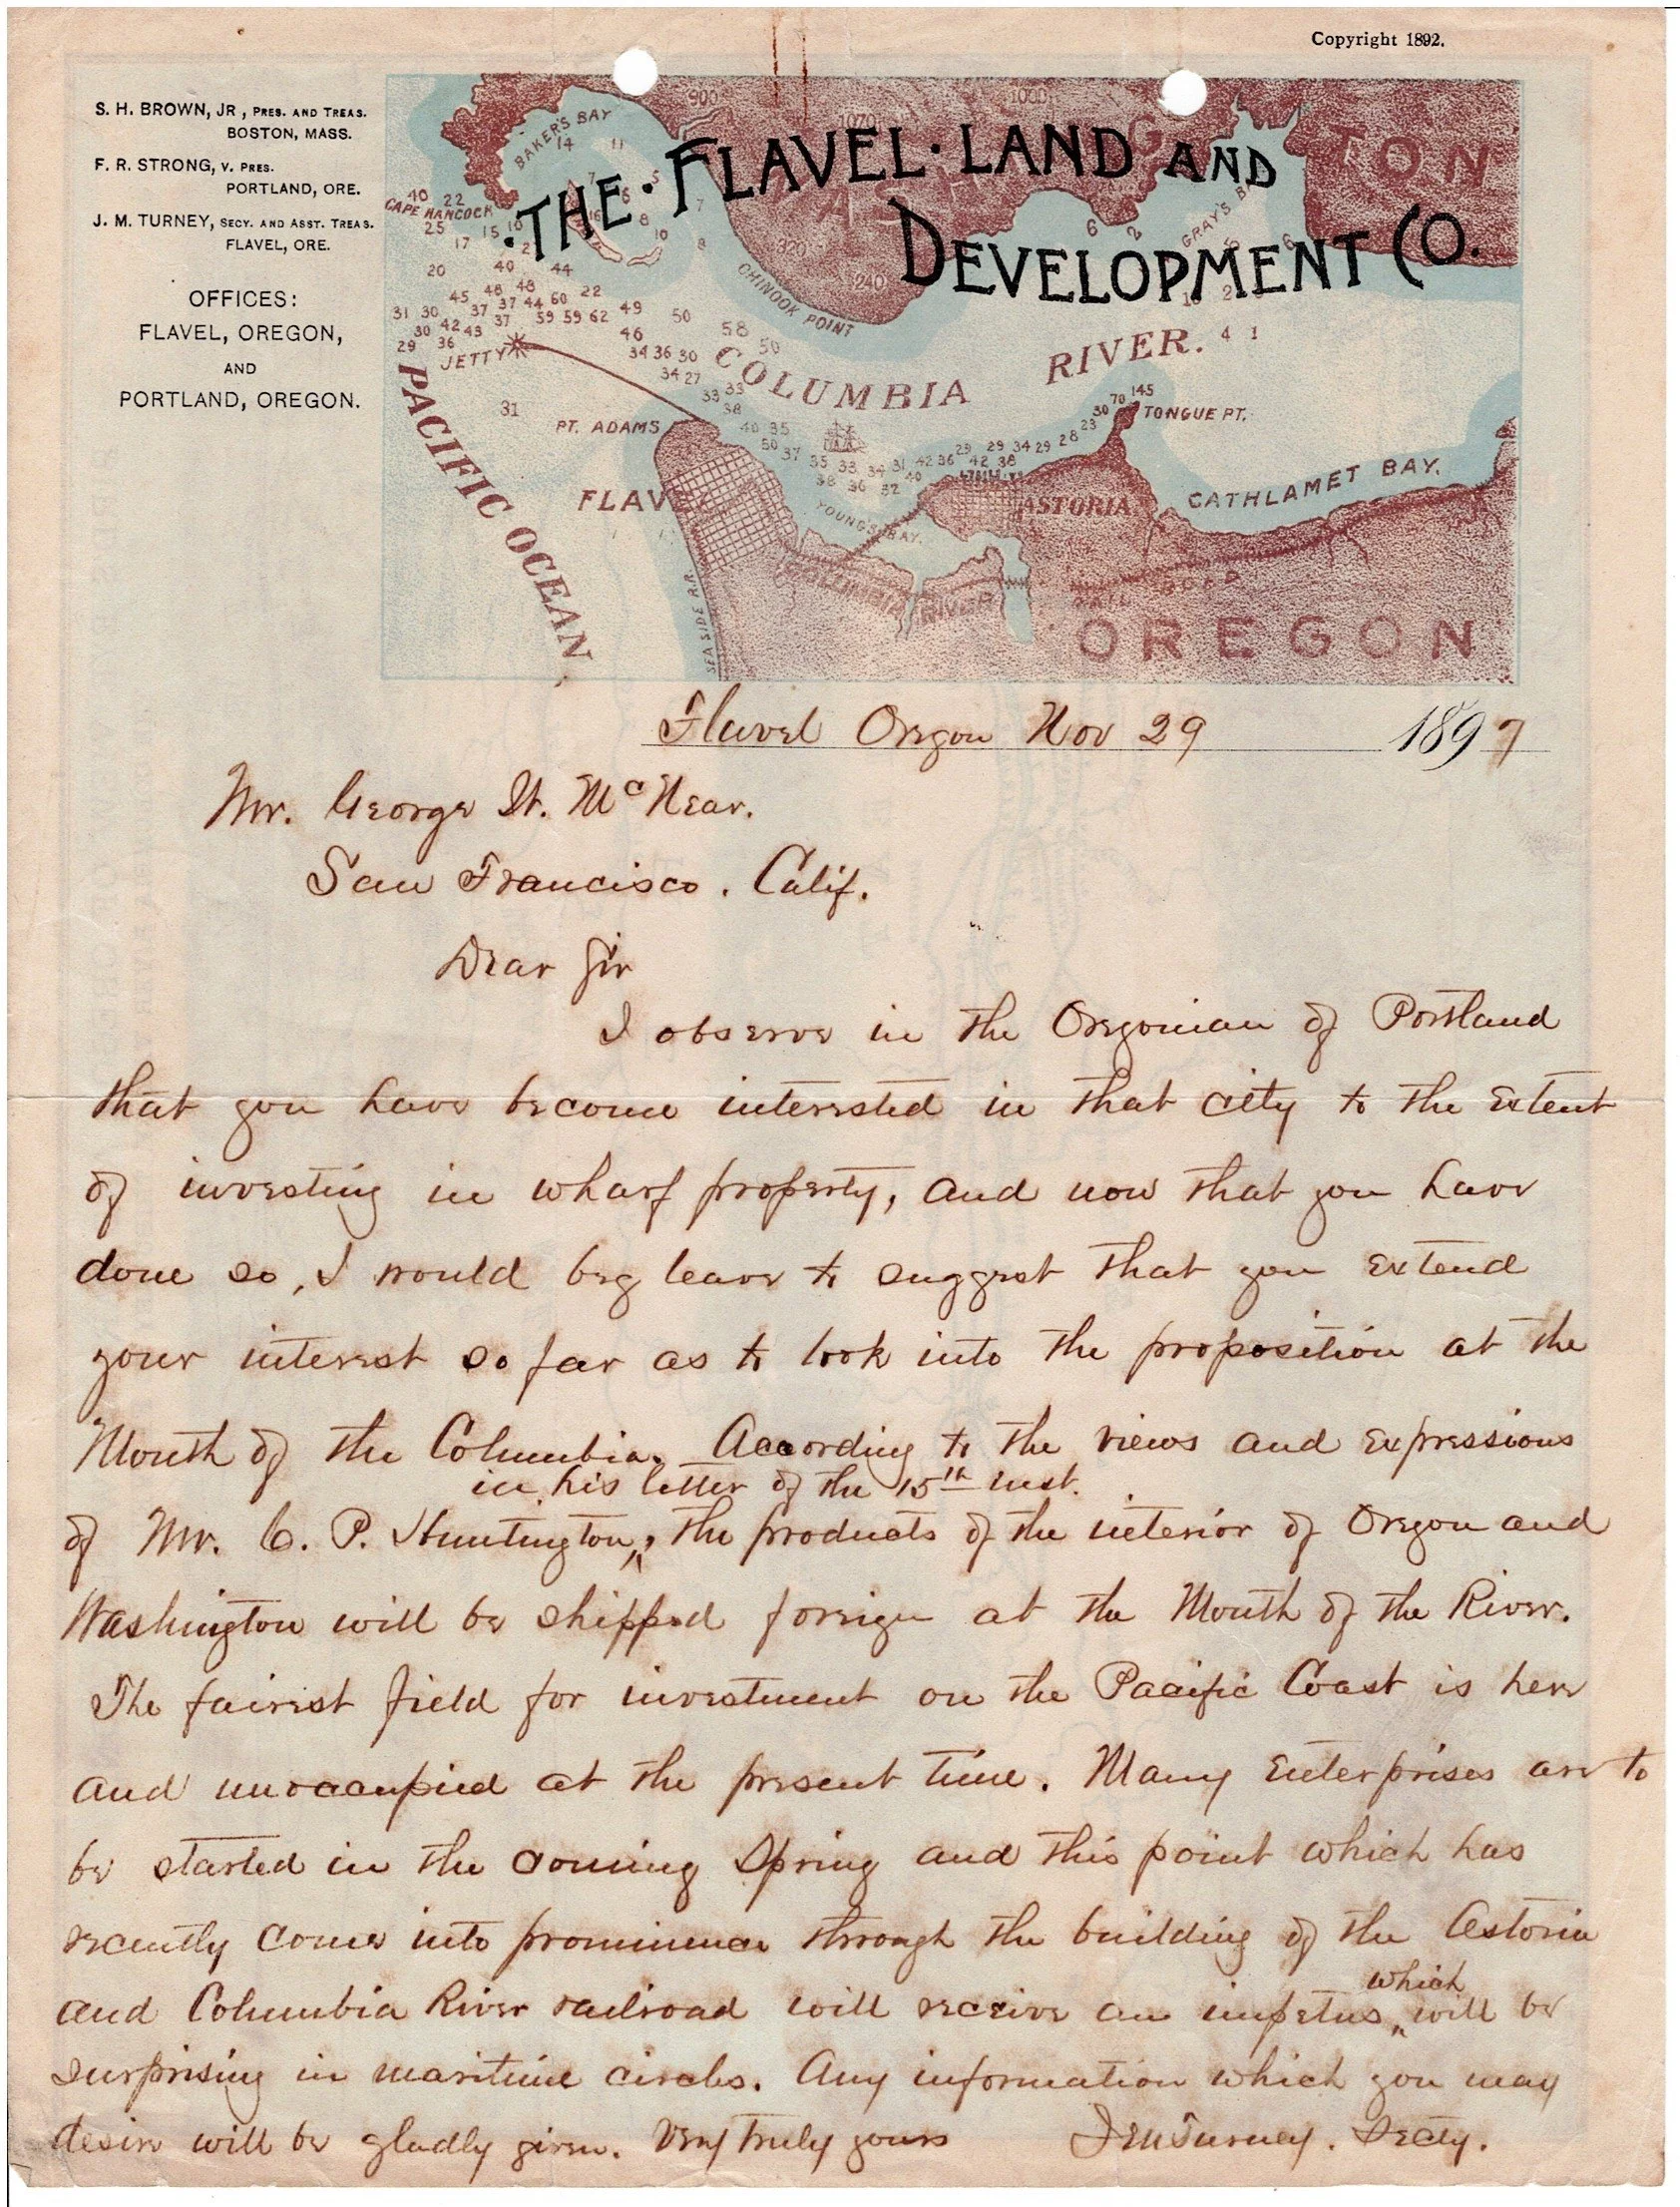 Copyright 1892.
S. H. BROWN, JR., PRES. AND TREAS.
BOSTON, MASS.
F. R. STRONG, V. PRES.
PORTLAND, ORE.
J. M. TURNEY, SECY. AND ASST. TREAS.
FLAVEL, ORE.
OFFICES:
FLAVEL, OREGON,
AND
PORTLAND, OREGON.
·THE·FLAVEL·LAND AND
DEVELOPMENT CO.
BAKER'S BAY
CAPE HANCOCK
GRAY'S BAY
CHINOOK POINT
COLUMBIA RIVER.
JETTY
PACIFIC OCEAN
PT. ADAMS
TONGUE PT.
FLAVEL
YOUNG'S BAY.
ASTORIA
CATHLAMET BAY.
SEA SIDE R.R.
COLUMBIA RIVER RAIL ROAD
OREGON
Flavel Oregon Nov 29 1897
Mr. George W. McNear.
San Francisco. Calif.
Dear Sir
I observe in the Oregonian of Portland
that you have become interested in that city to the extent
of investing in wharf property, and now that you have
done so, I would beg leave to suggest that you extend
your interest so far as to look into the proposition at the
Mouth of the Columbia. According to the views and expressions
in his letter of the 15th inst.
of Mr. C. P. Huntington, the products of the interior of Oregon and
Washington will be shipped foreign at the Mouth of the River.
The fairest field for investment on the Pacific Coast is here
and unoccupied at the present time. Many Enterprises are to
be started in the coming Spring and this point which has
recently come into prominence through the building of the Astoria
and Columbia River railroad will receive an impetus which will be
surprising in maritime circles. Any information which you may
desire will be gladly given. Very truly yours J M Turney. Secty.